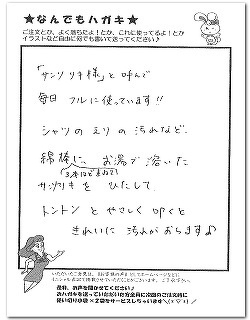 ★なんでもハガキ★
ご注文とか、よく落ちたよ!とか、これに使ってるよ!とか
イラストなど自由に何でも書いて送ってください♪
「サンソリキ様」と呼んで
毎日 フルに使っています!!
シャツのえりの汚れなど、
綿棒に、お湯で溶いた
(3本ほどまとめて)
サンソリキを ひたして
トントン と やさしく叩くと
きれいに 汚れがおちます♪
是非、お声を聞かせてください♪